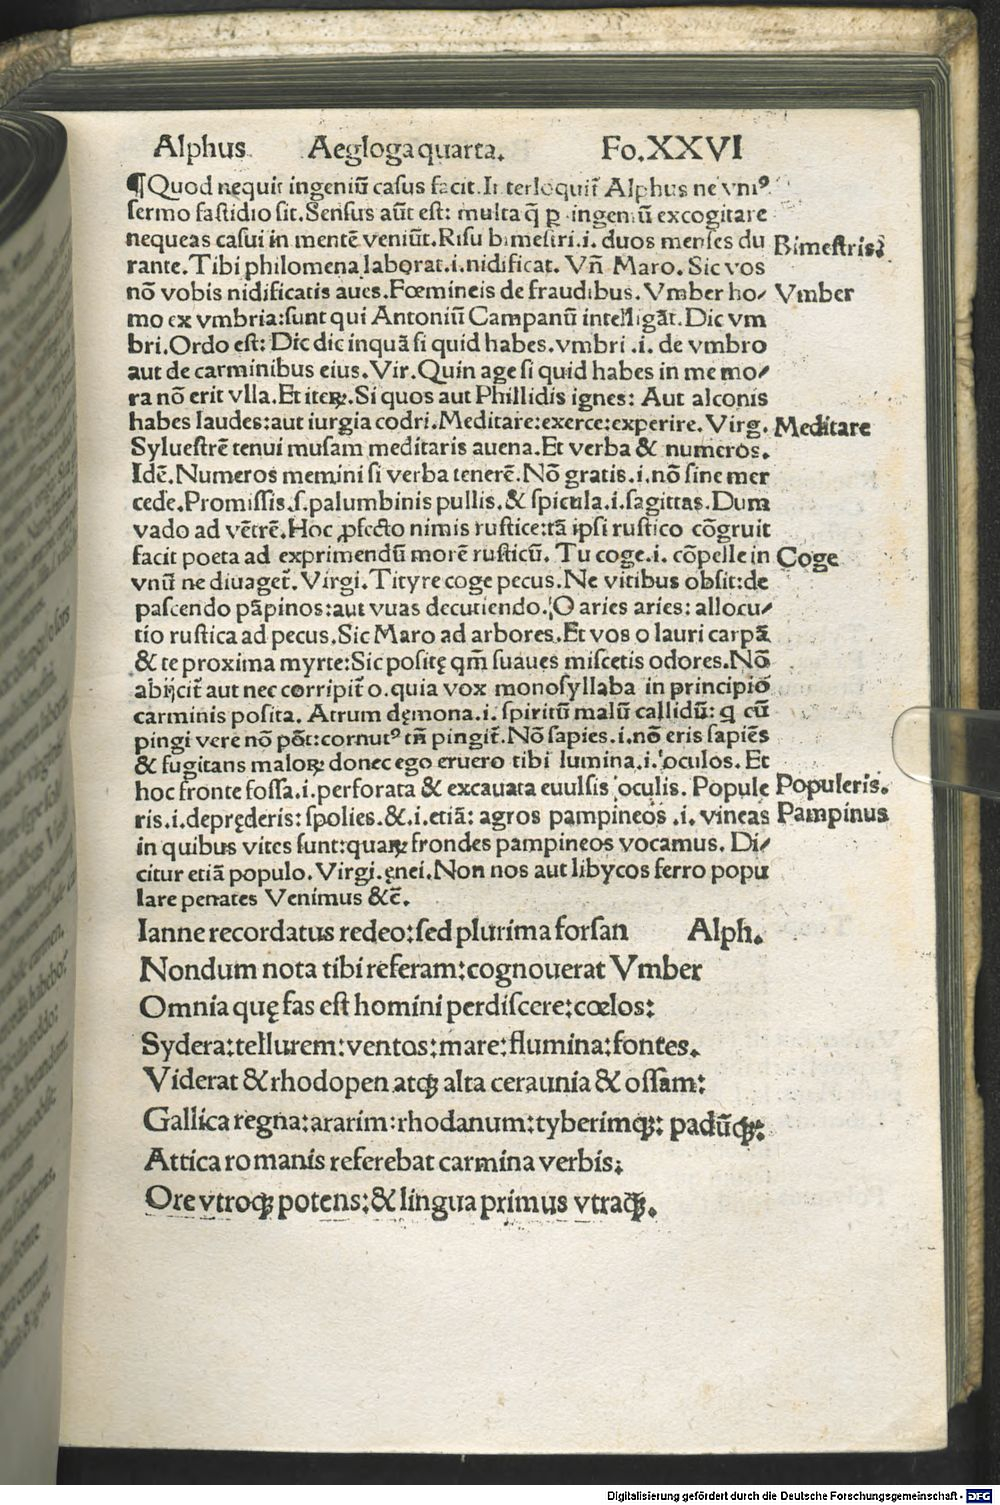 Alphus Aegloga quarta. Fo.XXVI
¶Quod nequit ingeniū casus facit. Iterloquit̄ Alphus ne vniꝰ
sermo fastidio sit. Sensus aūt est: multa q̄ ꝑ ingeniū excogitare
nequeas casui in mentē veniūt. Risu bimestri.i. duos menses du Bimestris
rante. Tibi philomena laborat.i.nidificat. Vn̄ Maro. Sic vos
nō vobis nidificatis aues. Fœmineis de fraudibus. Vmber ho⸗ Vmber
mo ex vmbria:sunt qui Antoniū Campanū intelligāt. Dic vm
bri. Ordo est: Dic dic inquā si quid habes. vmbri .i. de vmbro
aut de carminibus eius. Vir. Quin age si quid habes in me mo⸗
ra nō erit vlla. Et iteꝝ. Si quos aut Phillidis ignes: Aut alconis
habes laudes:aut iurgia codri. Meditare:exerce:experire. Virg. Meditare
Syluestrē tenui musam meditaris auena. Et verba & numeros.
Idē. Numeros memini si verba tenerē. Nō gratis.i.nō sine mer
cede. Promissis.s.palumbinis pullis. & spicula.i.sagittas. Dum
vado ad vētrē. Hoc ꝓfecto nimis rustice:tā ipsi rustico cōgruit
facit poeta ad exprimendū morē rusticū. Tu coge.i. cōpelle in Coge
vnū ne diuaget̄. Virgi. Tityre coge pecus. Ne vitibus obsit:de
pascendo pāpinos:aut vuas decutiendo. O aries aries: allocu⸗
tio rustica ad pecus. Sic Maro ad arbores. Et vos o lauri carpā
& te proxima myrte:Sic positę qm̄ suaues miscetis odores. Nō
abijcit̄ aut nec corripit̄ o. quia vox monosyllaba in principio
carminis posita. Atrum dęmona.i. spiritū malū callidū: q cū
pingi vere nō pōt:cornutꝰ tn̄ pingit̄. Nō sapies.i.nō eris sapiēs
& fugitans maloꝝ donec ego eruero tibi lumina.i. oculos. Et
hoc fronte fossa.i. perforata & excauata euulsis oculis. Popule Populeris.
ris.i.deprędēris: spolies. &.i.etiā: agros pampineos .i. vineas Pampinus
in quibus vites sunt:quaꝝ frondes pampineos vocamus. Di⸗
citur etiā populo. Virgi.ęnei. Non nos aut libycos ferro popu
lare penates Venimus &c̄.
Ianne recordatus redeo:sed plurima forsan Alph.
Nondum nota tibi referam:cognouerat Vmber
Omnia quę fas est homini perdiscere:cœlos:
Sydera:tellurem:ventos:mare:flumina:fontes.
Viderat & rhodopen atqꝫ alta ceraunia & ossam:
Gallica regna:ararim:rhodanum:tyberimqꝫ: padūqꝫ:
Attica romanis referebat carmina verbis:
Ore vtroqꝫ potens:& lingua primus vtraqꝫ.
Digitalisierung gefördert durch die Deutsche Forschungsgemeinschaft - DFG